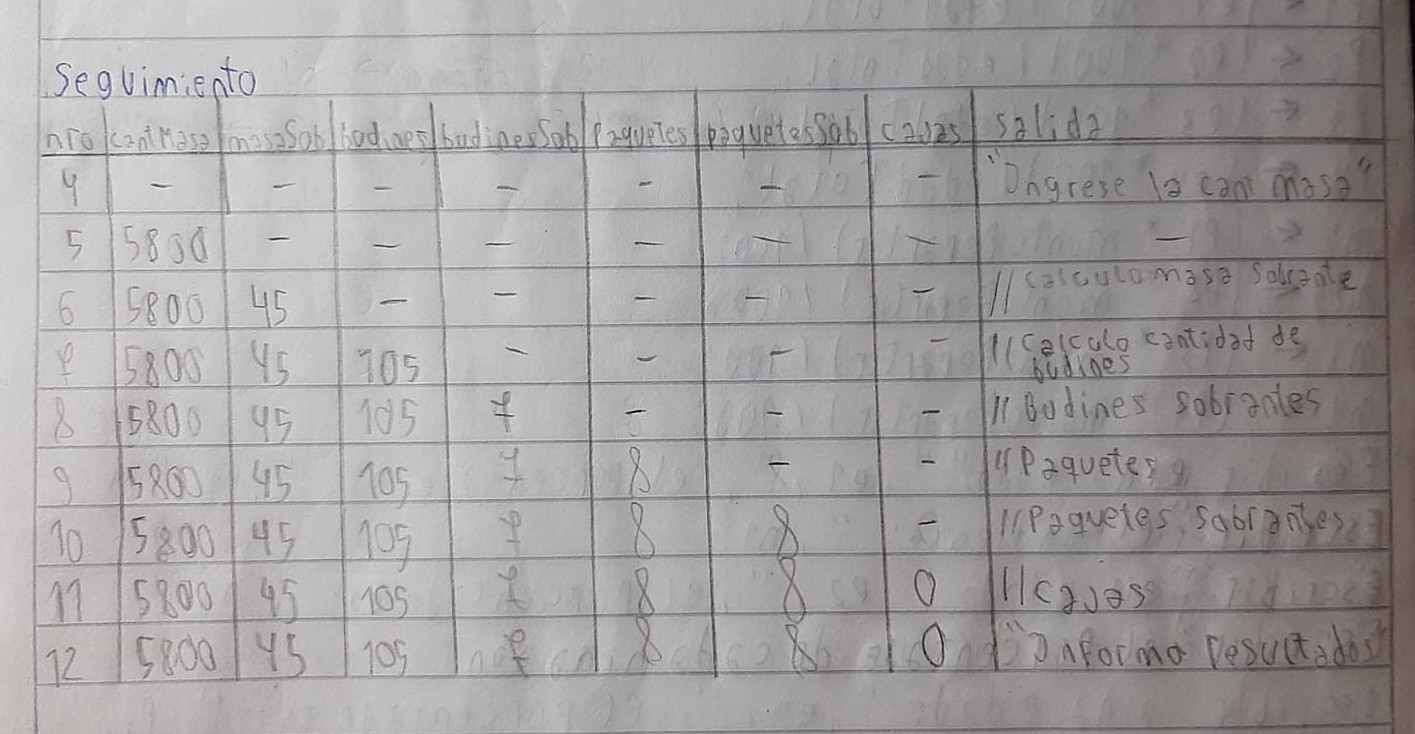 Seguimiento
nro cantMasa masaSob budines budinesSob Paquetes paquetesSob cajas salida
4 - - - - - - - "Ingrese la cant masa"
5 5800 - - - - - - -
6 5800 45 - - - - - // Calculo masa Sobrante
7 5800 45 105 - - - - // Calculo cantidad de
budines
8 5800 45 105 7 - - - // Budines sobrantes
9 5800 45 105 7 8 - - // Paquetes
10 5800 45 105 7 8 8 - // Paquetes sobrantes
11 5800 45 105 7 8 8 0 // cajas
12 5800 45 105 7 8 8 0 "Informo resultados"